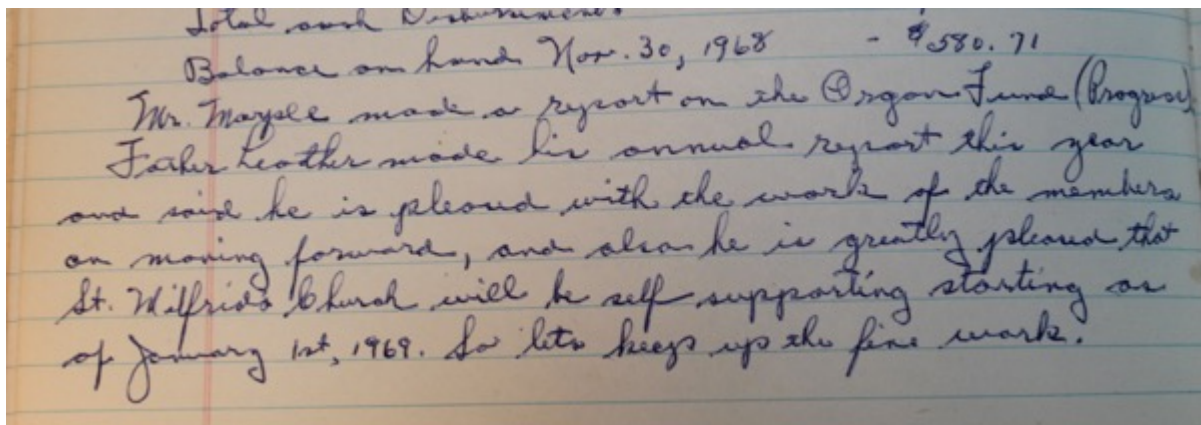 Total cash Disbursements
Balance on hand Nov. 30, 1968 - $580.71
Mr. Marple made a report on the Organ Fund (Progress)
Father Leather made his annual report this year
and said he is pleasud with the work of the members
on moving forward, and also he is greatly pleasud that
St. Wilfrids Church will be self supporting starting as
of January 1st, 1969. So lets keep up the fine work.